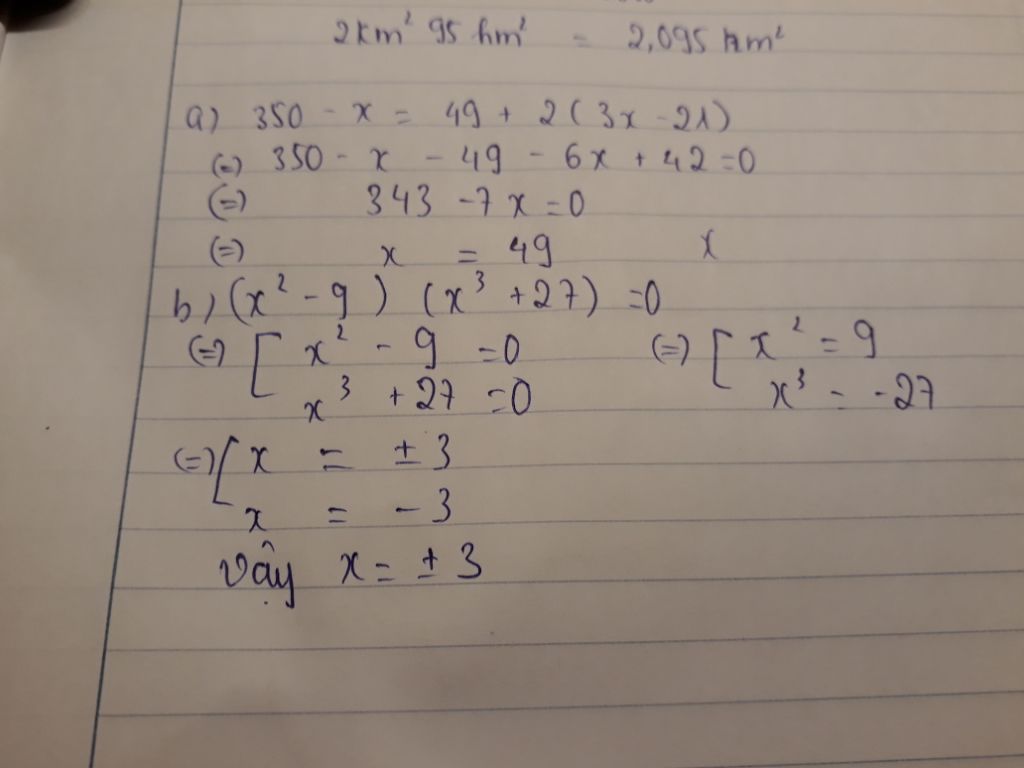 2km² 95 hm² = 2,095 km²
a) 350 - x = 49 + 2(3x - 21)
(=) 350 - x - 49 - 6x + 42 = 0
(=) 343 - 7x = 0
(=) x = 49 x
b) (x² - 9) (x³ + 27) = 0
(=) [ x² - 9 = 0 (=) [ x² = 9
x³ + 27 = 0 x³ = -27
(=) [ x = ± 3
x = - 3
vậy x = ± 3